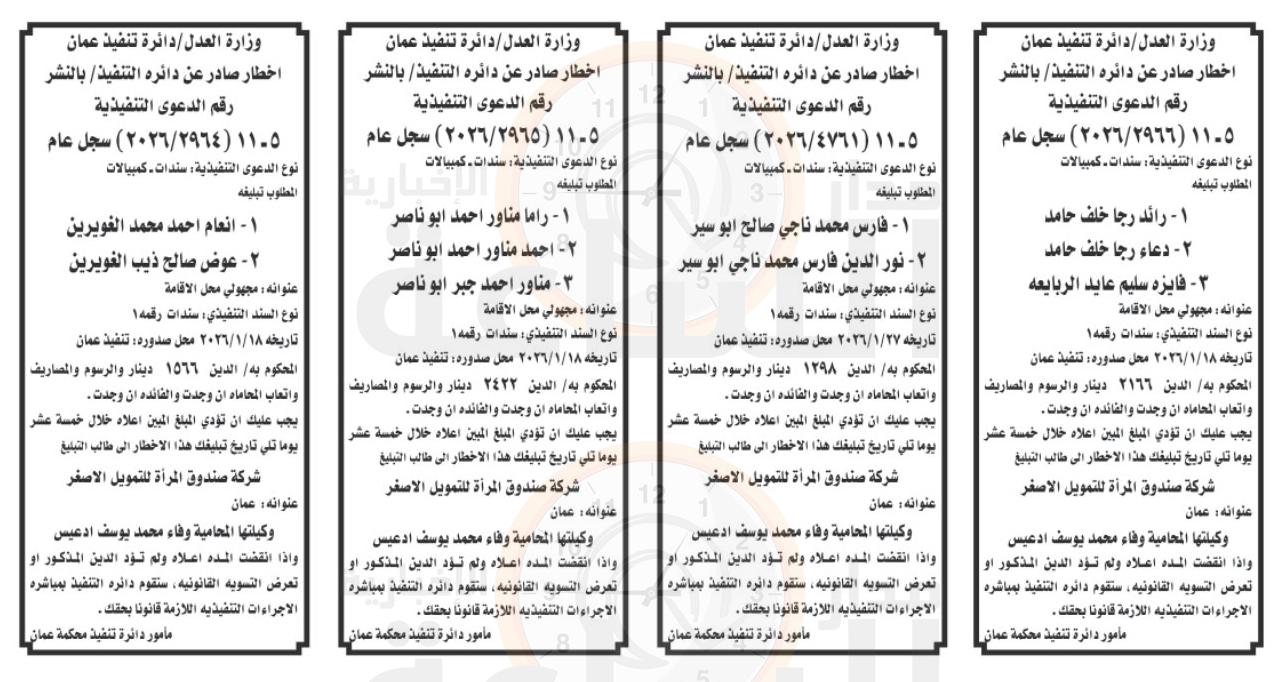 وزارة العدل/دائرة تنفيذ عمان
اخطار صادر عن دائره التنفيذ/ بالنشر
رقم الدعوى التنفيذية
٥ ـ ١١ (٢٠٢٦/٢٩٦٦) سجل عام
نوع الدعوى التنفيذية: سندات ـ كمبيالات
المطلوب تبليغه
١- رائد رجا خلف حامد
٢- دعاء رجا خلف حامد
٣- فايزه سليم عايد الربايعه
عنوانه: مجهولي محل الاقامة
نوع السند التنفيذي: سندات رقمه١
تاريخه ٢٠٢٦/١/١٨ محل صدوره: تنفيذ عمان
المحكوم به/ الدين ٢١٦٦ دينار والرسوم والمصاريف
واتعاب المحاماه ان وجدت والفائده ان وجدت.
يجب عليك ان تؤدي المبلغ المبين اعلاه خلال خمسة عشر
يوما تلي تاريخ تبليغك هذا الاخطار الى طالب التبليغ
شركة صندوق المرأة للتمويل الاصغر
عنوانه: عمان
وكيلتها المحامية وفاء محمد يوسف ادعيس
واذا انقضت المده اعلاه ولم تؤد الدين المذكور او
تعرض التسويه القانونيه، ستقوم دائره التنفيذ بمباشره
الاجراءات التنفيذيه اللازمة قانونا بحقك.
مأمور دائرة تنفيذ محكمة عمان
وزارة العدل/دائرة تنفيذ عمان
اخطار صادر عن دائره التنفيذ/ بالنشر
رقم الدعوى التنفيذية
٥ ـ ١١ (٢٠٢٦/٤٧٦١) سجل عام
نوع الدعوى التنفيذية: سندات ـ كمبيالات
المطلوب تبليغه
١- فارس محمد ناجي صالح ابو سير
٢- نور الدين فارس محمد ناجي ابو سير
عنوانه: مجهولي محل الاقامة
نوع السند التنفيذي: سندات رقمه١
تاريخه ٢٠٢٦/١/٢٧ محل صدوره: تنفيذ عمان
المحكوم به/ الدين ١٢٩٨ دينار والرسوم والمصاريف
واتعاب المحاماه ان وجدت والفائده ان وجدت.
يجب عليك ان تؤدي المبلغ المبين اعلاه خلال خمسة عشر
يوما تلي تاريخ تبليغك هذا الاخطار الى طالب التبليغ
شركة صندوق المرأة للتمويل الاصغر
عنوانه: عمان
وكيلتها المحامية وفاء محمد يوسف ادعيس
واذا انقضت المده اعلاه ولم تؤد الدين المذكور او
تعرض التسويه القانونيه، ستقوم دائره التنفيذ بمباشره
الاجراءات التنفيذيه اللازمة قانونا بحقك.
مأمور دائرة تنفيذ محكمة عمان
وزارة العدل/دائرة تنفيذ عمان
اخطار صادر عن دائره التنفيذ/ بالنشر
رقم الدعوى التنفيذية
٥ ـ ١١ (٢٠٢٦/٢٩٦٥) سجل عام
نوع الدعوى التنفيذية: سندات ـ كمبيالات
المطلوب تبليغه
١- راما مناور احمد ابو ناصر
٢- احمد مناور احمد ابو ناصر
٣- مناور احمد جبر ابو ناصر
عنوانه: مجهولي محل الاقامة
نوع السند التنفيذي: سندات رقمه١
تاريخه ٢٠٢٦/١/١٨ محل صدوره: تنفيذ عمان
المحكوم به/ الدين ٢٤٢٢ دينار والرسوم والمصاريف
واتعاب المحاماه ان وجدت والفائده ان وجدت.
يجب عليك ان تؤدي المبلغ المبين اعلاه خلال خمسة عشر
يوما تلي تاريخ تبليغك هذا الاخطار الى طالب التبليغ
شركة صندوق المرأة للتمويل الاصغر
عنوانه: عمان
وكيلتها المحامية وفاء محمد يوسف ادعيس
واذا انقضت المده اعلاه ولم تؤد الدين المذكور او
تعرض التسويه القانونيه، ستقوم دائره التنفيذ بمباشره
الاجراءات التنفيذيه اللازمة قانونا بحقك.
مأمور دائرة تنفيذ محكمة عمان
وزارة العدل/دائرة تنفيذ عمان
اخطار صادر عن دائره التنفيذ/ بالنشر
رقم الدعوى التنفيذية
٥ ـ ١١ (٢٠٢٦/٢٩٦٤) سجل عام
نوع الدعوى التنفيذية: سندات ـ كمبيالات
المطلوب تبليغه
١- انعام احمد محمد الغويرين
٢- عوض صالح ذيب الغويرين
عنوانه: مجهولي محل الاقامة
نوع السند التنفيذي: سندات رقمه١
تاريخه ٢٠٢٦/١/١٨ محل صدوره: تنفيذ عمان
المحكوم به/ الدين ١٥٦٦ دينار والرسوم والمصاريف
واتعاب المحاماه ان وجدت والفائده ان وجدت.
يجب عليك ان تؤدي المبلغ المبين اعلاه خلال خمسة عشر
يوما تلي تاريخ تبليغك هذا الاخطار الى طالب التبليغ
شركة صندوق المرأة للتمويل الاصغر
عنوانه: عمان
وكيلتها المحامية وفاء محمد يوسف ادعيس
واذا انقضت المده اعلاه ولم تؤد الدين المذكور او
تعرض التسويه القانونيه، ستقوم دائره التنفيذ بمباشره
الاجراءات التنفيذيه اللازمة قانونا بحقك.
مأمور دائرة تنفيذ محكمة عمان